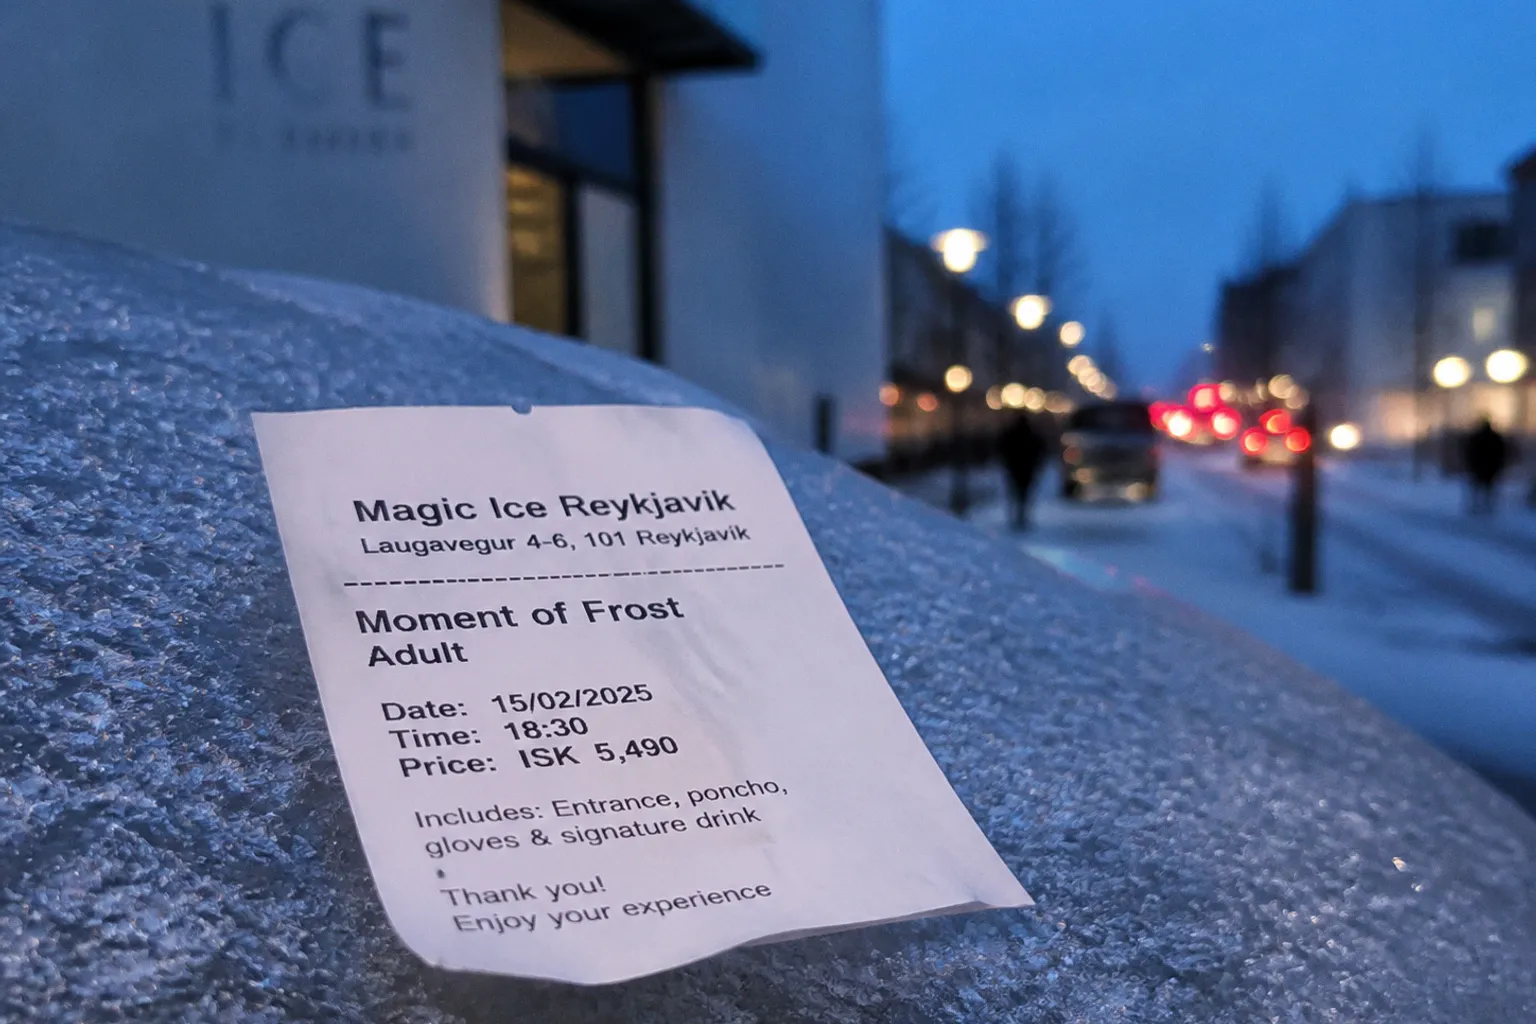 ICE
Magic Ice Reykjavik
Laugavegur 4-6, 101 Reykjavik
Moment of Frost
Adult
Date: 15/02/2025
Time: 18:30
Price: ISK 5,490
Includes: Entrance, poncho,
gloves & signature drink
Thank you!
Enjoy your experience